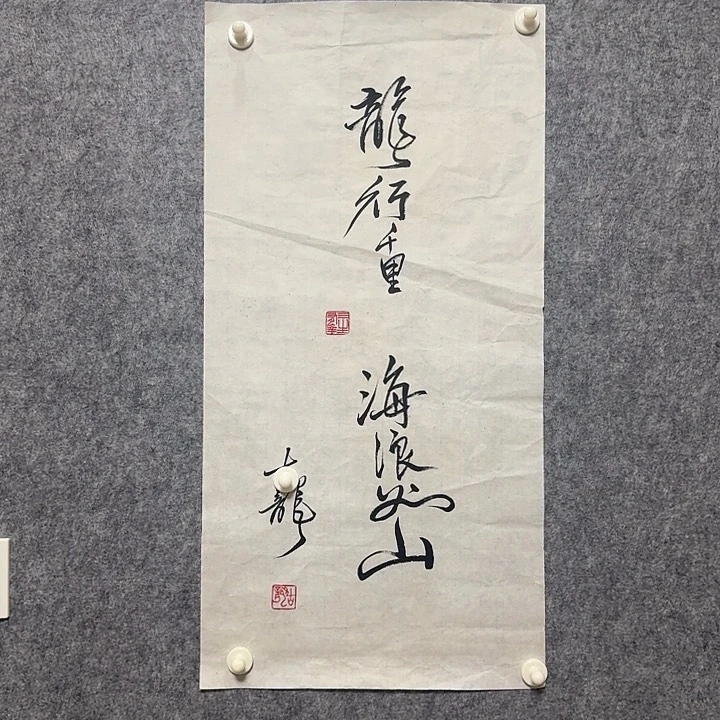 龍行千里
海浪如山
龍